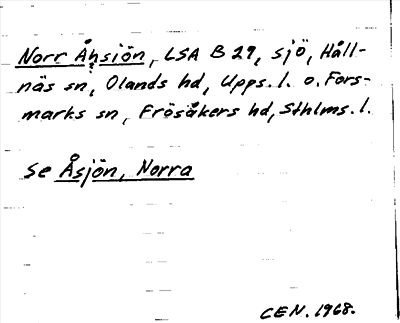 Norr Åhsiön, LSA B 29, sjö, Håll-
näs sn, Olands hd, Upps. l. o. Fors-
marks sn, Frösåkers hd, Sthlms. l.
se Åsjön, Norra
CEN. 1968.